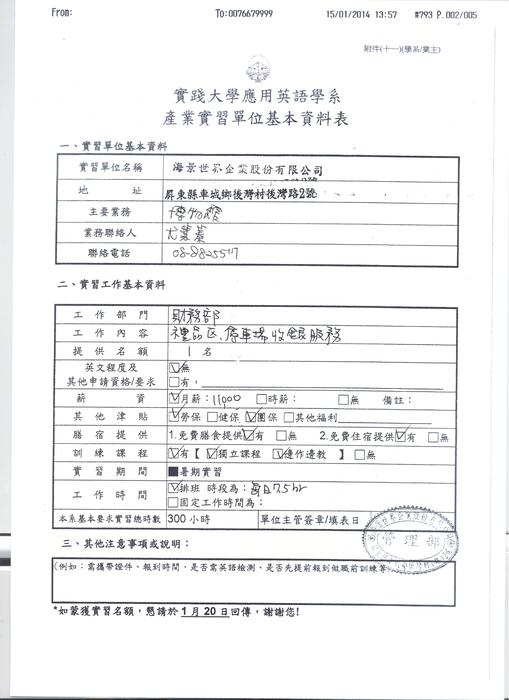 From: To:0076679999 15/01/2014 13:57 #793 P.002/005
附件(十一)(學系/業主)
實踐大學應用英語學系
產業實習單位基本資料表
一、實習單位基本資料
實習單位名稱 海景世界企業股份有限公司
地 址 屏東縣車城鄉後灣村後灣路2號
主要業務 博物館
業務聯絡人
聯絡電話 08-8825517
二、實習工作基本資料
工作部門 財務部
工作內容 禮品区、停車場收銀服務
提供名額 1 名
英文程度及 ☑無
其他申請資格/要求 □有,
薪 資 ☑月薪：11000 □時薪： □無 備註：
其他津貼 ☑勞保 □健保 ☑團保 □其他福利
膳宿提供 1.免費膳食提供☑有 □無 2.免費住宿提供☑有 □無
訓練課程 ☑有【 ☑獨立課程 ☑邊作邊教 】□無
實習期間 ■暑期實習
工作時間 ☑排班 時段為：每日7.5hr
□固定工作時間為：
本系基本要求實習總時數 300 小時 單位主管簽章/填表日
管理部
三、其他注意事項或說明：
(例如：需攜帶證件、報到時間、是否需英語檢測、是否先提前報到做職前訓練等
*如蒙獲實習名額，懇請於 1 月 20 日回傳，謝謝您!